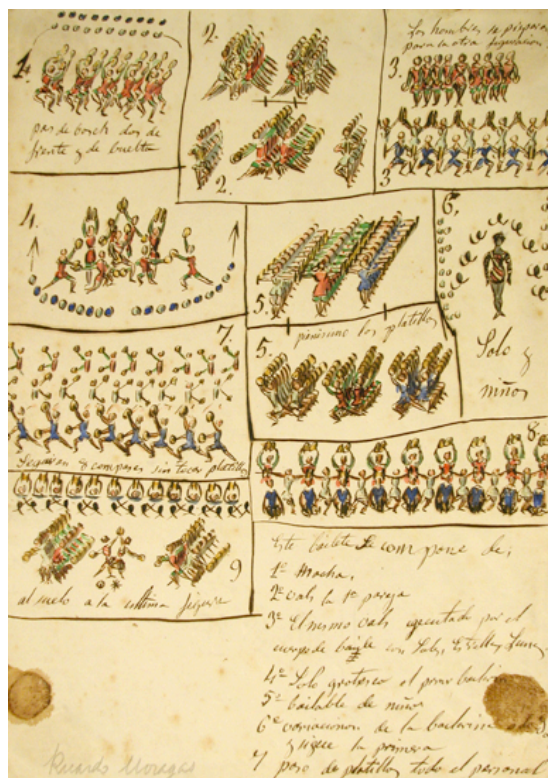 1.
pas de bosch dos de
frente y de buelta
2.
2.
Los hombres se preparan
para la otra figuracion
3.
3
4.
5.
pianisimo los platillos
5.
6.
Solo y
niños
7.
Seguiran 8 compases sin tocar platillos
8
9
al suelo a la ultima figura
Este bailete se compone de;
1º Marcha,
2º vals la 1ª pareja
3º El mismo vals egecutado por el
cuerpo de baile con Sol, Estrella y Luna,
4º Solo grotesco el primer bailarin
5º bailable de niños
6º variaciones de la bailarina
y sigue la primera
7 paso de platillos todo el personal
Ricardo Moragas